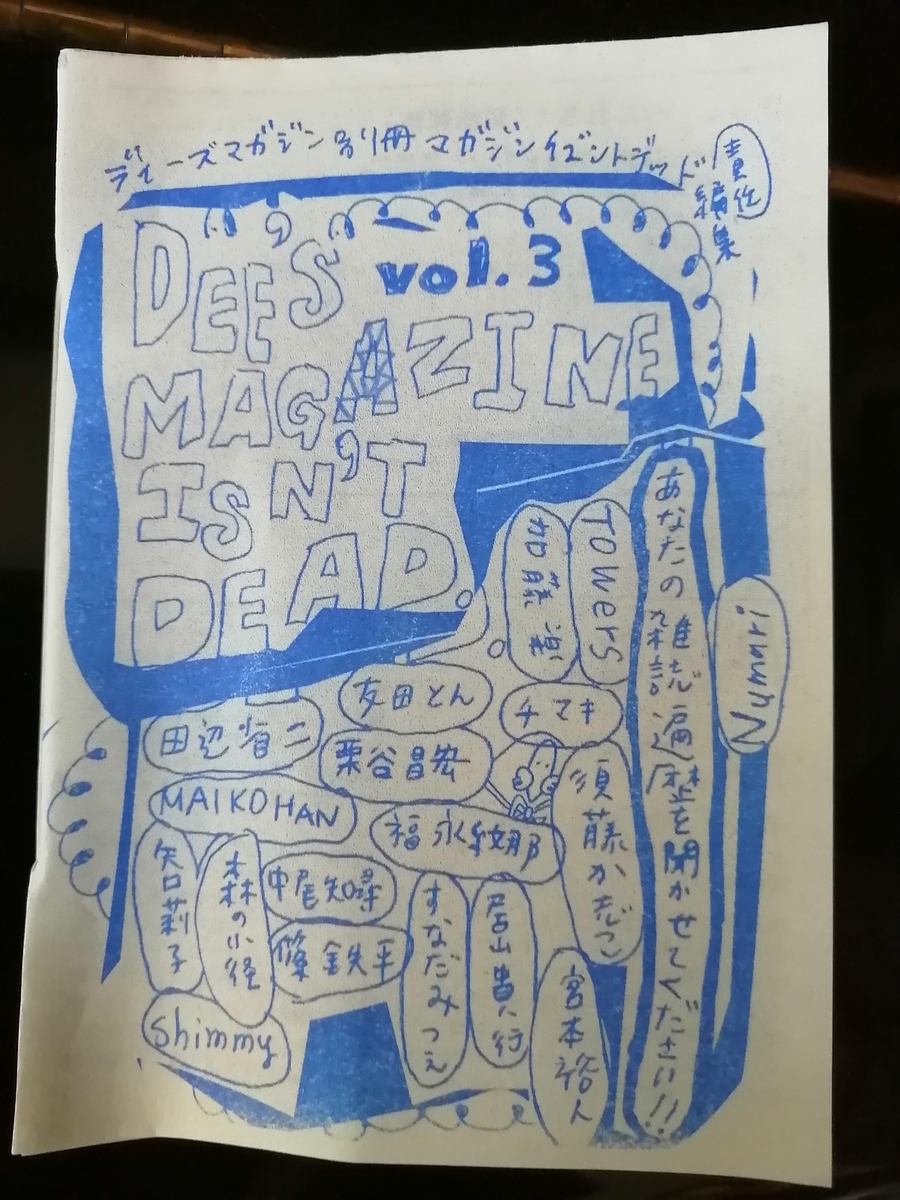 ディーズマガジン別冊 マガジンイズントデッド
責任
編集
DEE'S
vol.3
MAGAZINE
ISN'T
DEAD.
あなたの雑誌遍歴を聞かせてください!!
Numuri
TOwerS
加藤
チマキ
友田とん
田辺省二
栗谷昌宏
MAIKO HAN
福永
須藤かおこ
中尾知尋
篠鉄平
森の小径
莉子
すなだみつえ
居山貴行
宮本裕人
Shimmy